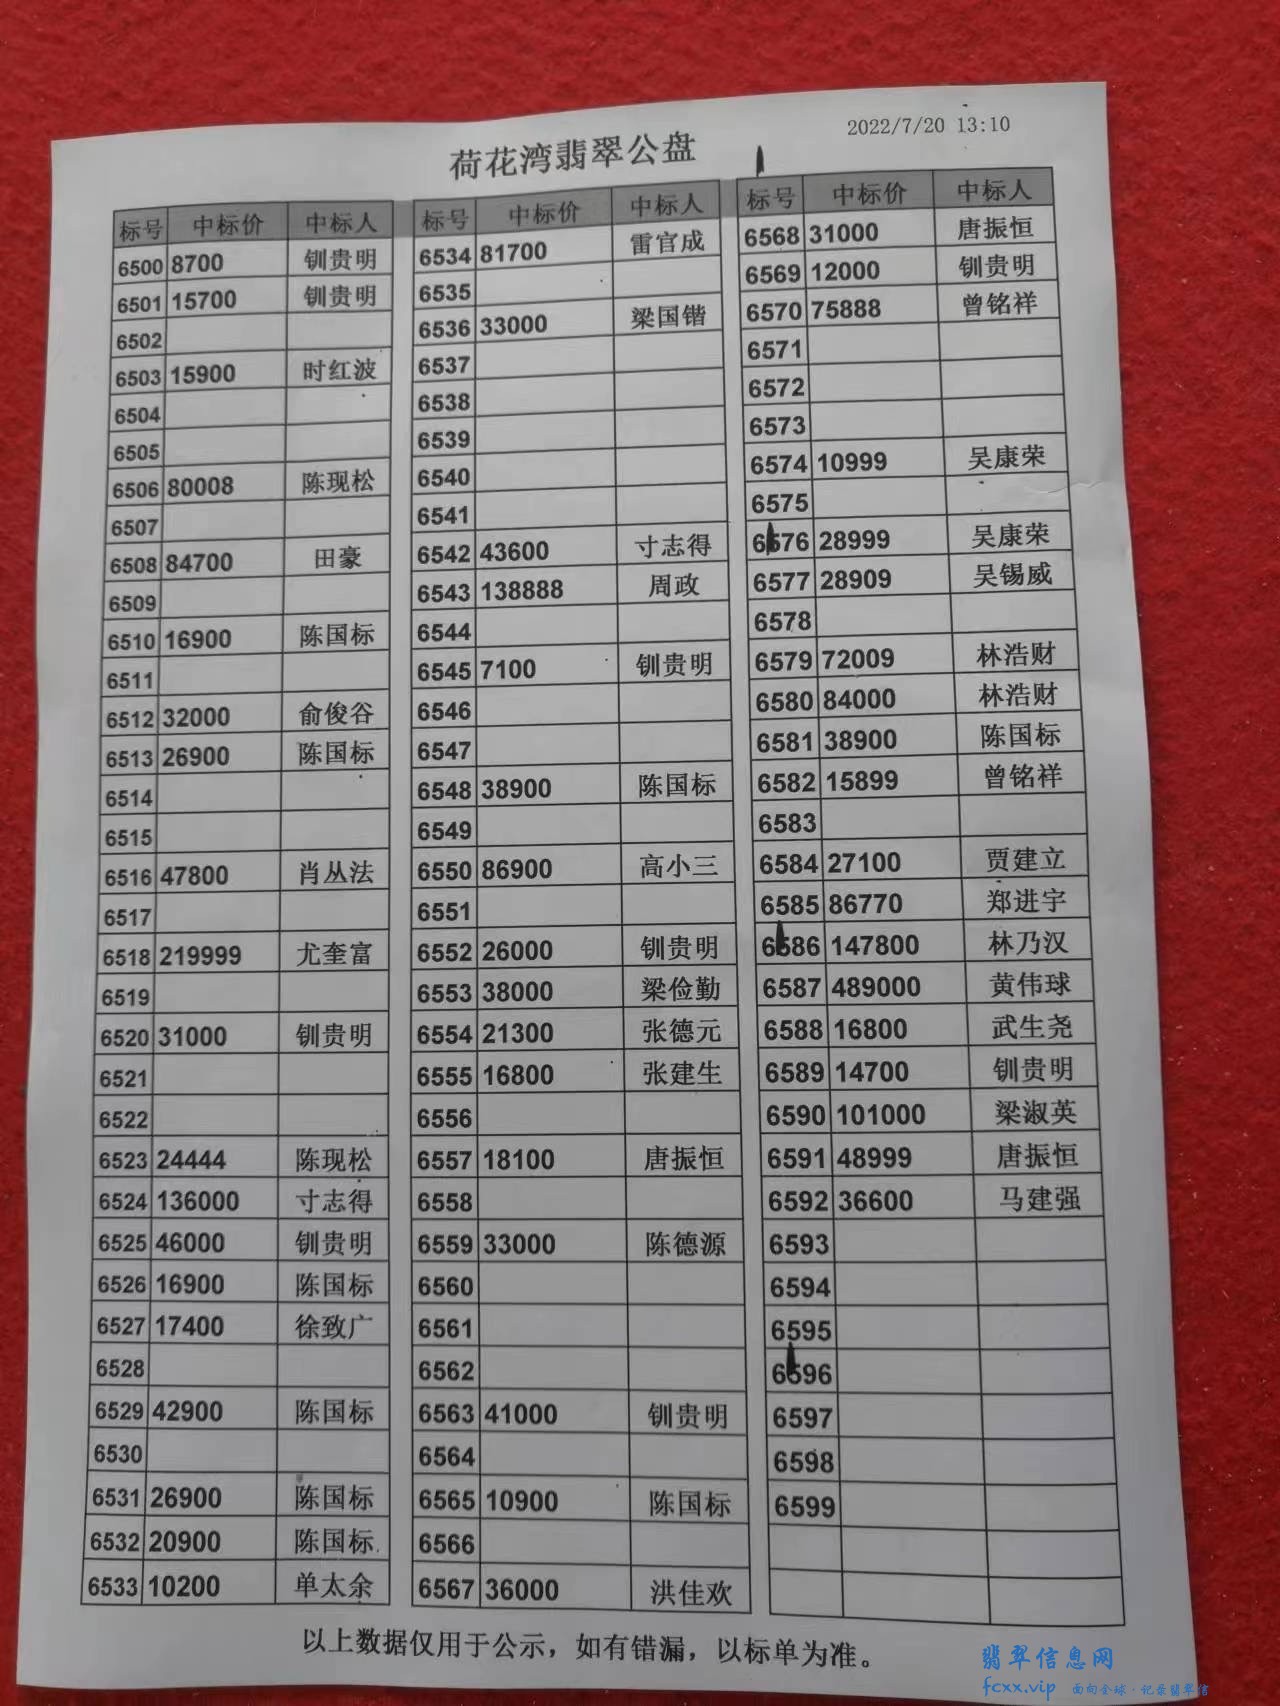 2022/7/20 13:10
荷花湾翡翠公盘
标号 中标价 中标人 标号 中标价 中标人 标号 中标价 中标人
6500 8700 钏贵明 6534 81700 雷官成 6568 31000 唐振恒
6501 15700 钏贵明 6535 6569 12000 钏贵明
6502 6536 33000 梁国锴 6570 75888 曾铭祥
6503 15900 时红波 6537 6571
6504 6538 6572
6505 6539 6573
6506 80008 陈现松 6540 6574 10999 吴康荣
6507 6541 6575
6508 84700 田豪 6542 43600 寸志得 6576 28999 吴康荣
6509 6543 138888 周政 6577 28909 吴锡威
6510 16900 陈国标 6544 6578
6511 6545 7100 钏贵明 6579 72009 林浩财
6512 32000 俞俊谷 6546 6580 84000 林浩财
6513 26900 陈国标 6547 6581 38900 陈国标
6514 6548 38900 陈国标 6582 15899 曾铭祥
6515 6549 6583
6516 47800 肖丛法 6550 86900 高小三 6584 27100 贾建立
6517 6551 6585 86770 郑进宇
6518 219999 尤奎富 6552 26000 钏贵明 6586 147800 林乃汉
6519 6553 38000 梁俭勤 6587 489000 黄伟球
6520 31000 钏贵明 6554 21300 张德元 6588 16800 武生尧
6521 6555 16800 张建生 6589 14700 钏贵明
6522 6556 6590 101000 梁淑英
6523 24444 陈现松 6557 18100 唐振恒 6591 48999 唐振恒
6524 136000 寸志得 6558 6592 36600 马建强
6525 46000 钏贵明 6559 33000 陈德源 6593
6526 16900 陈国标 6560 6594
6527 17400 徐致广 6561 6595
6528 6562 6596
6529 42900 陈国标 6563 41000 钏贵明 6597
6530 6564 6598
6531 26900 陈国标 6565 10900 陈国标 6599
6532 20900 陈国标 6566
6533 10200 单太余 6567 36000 洪佳欢
以上数据仅用于公示，如有错漏，以标单为准。
翡翠信息网
fcxx.vip 面向全球·记录翡翠信